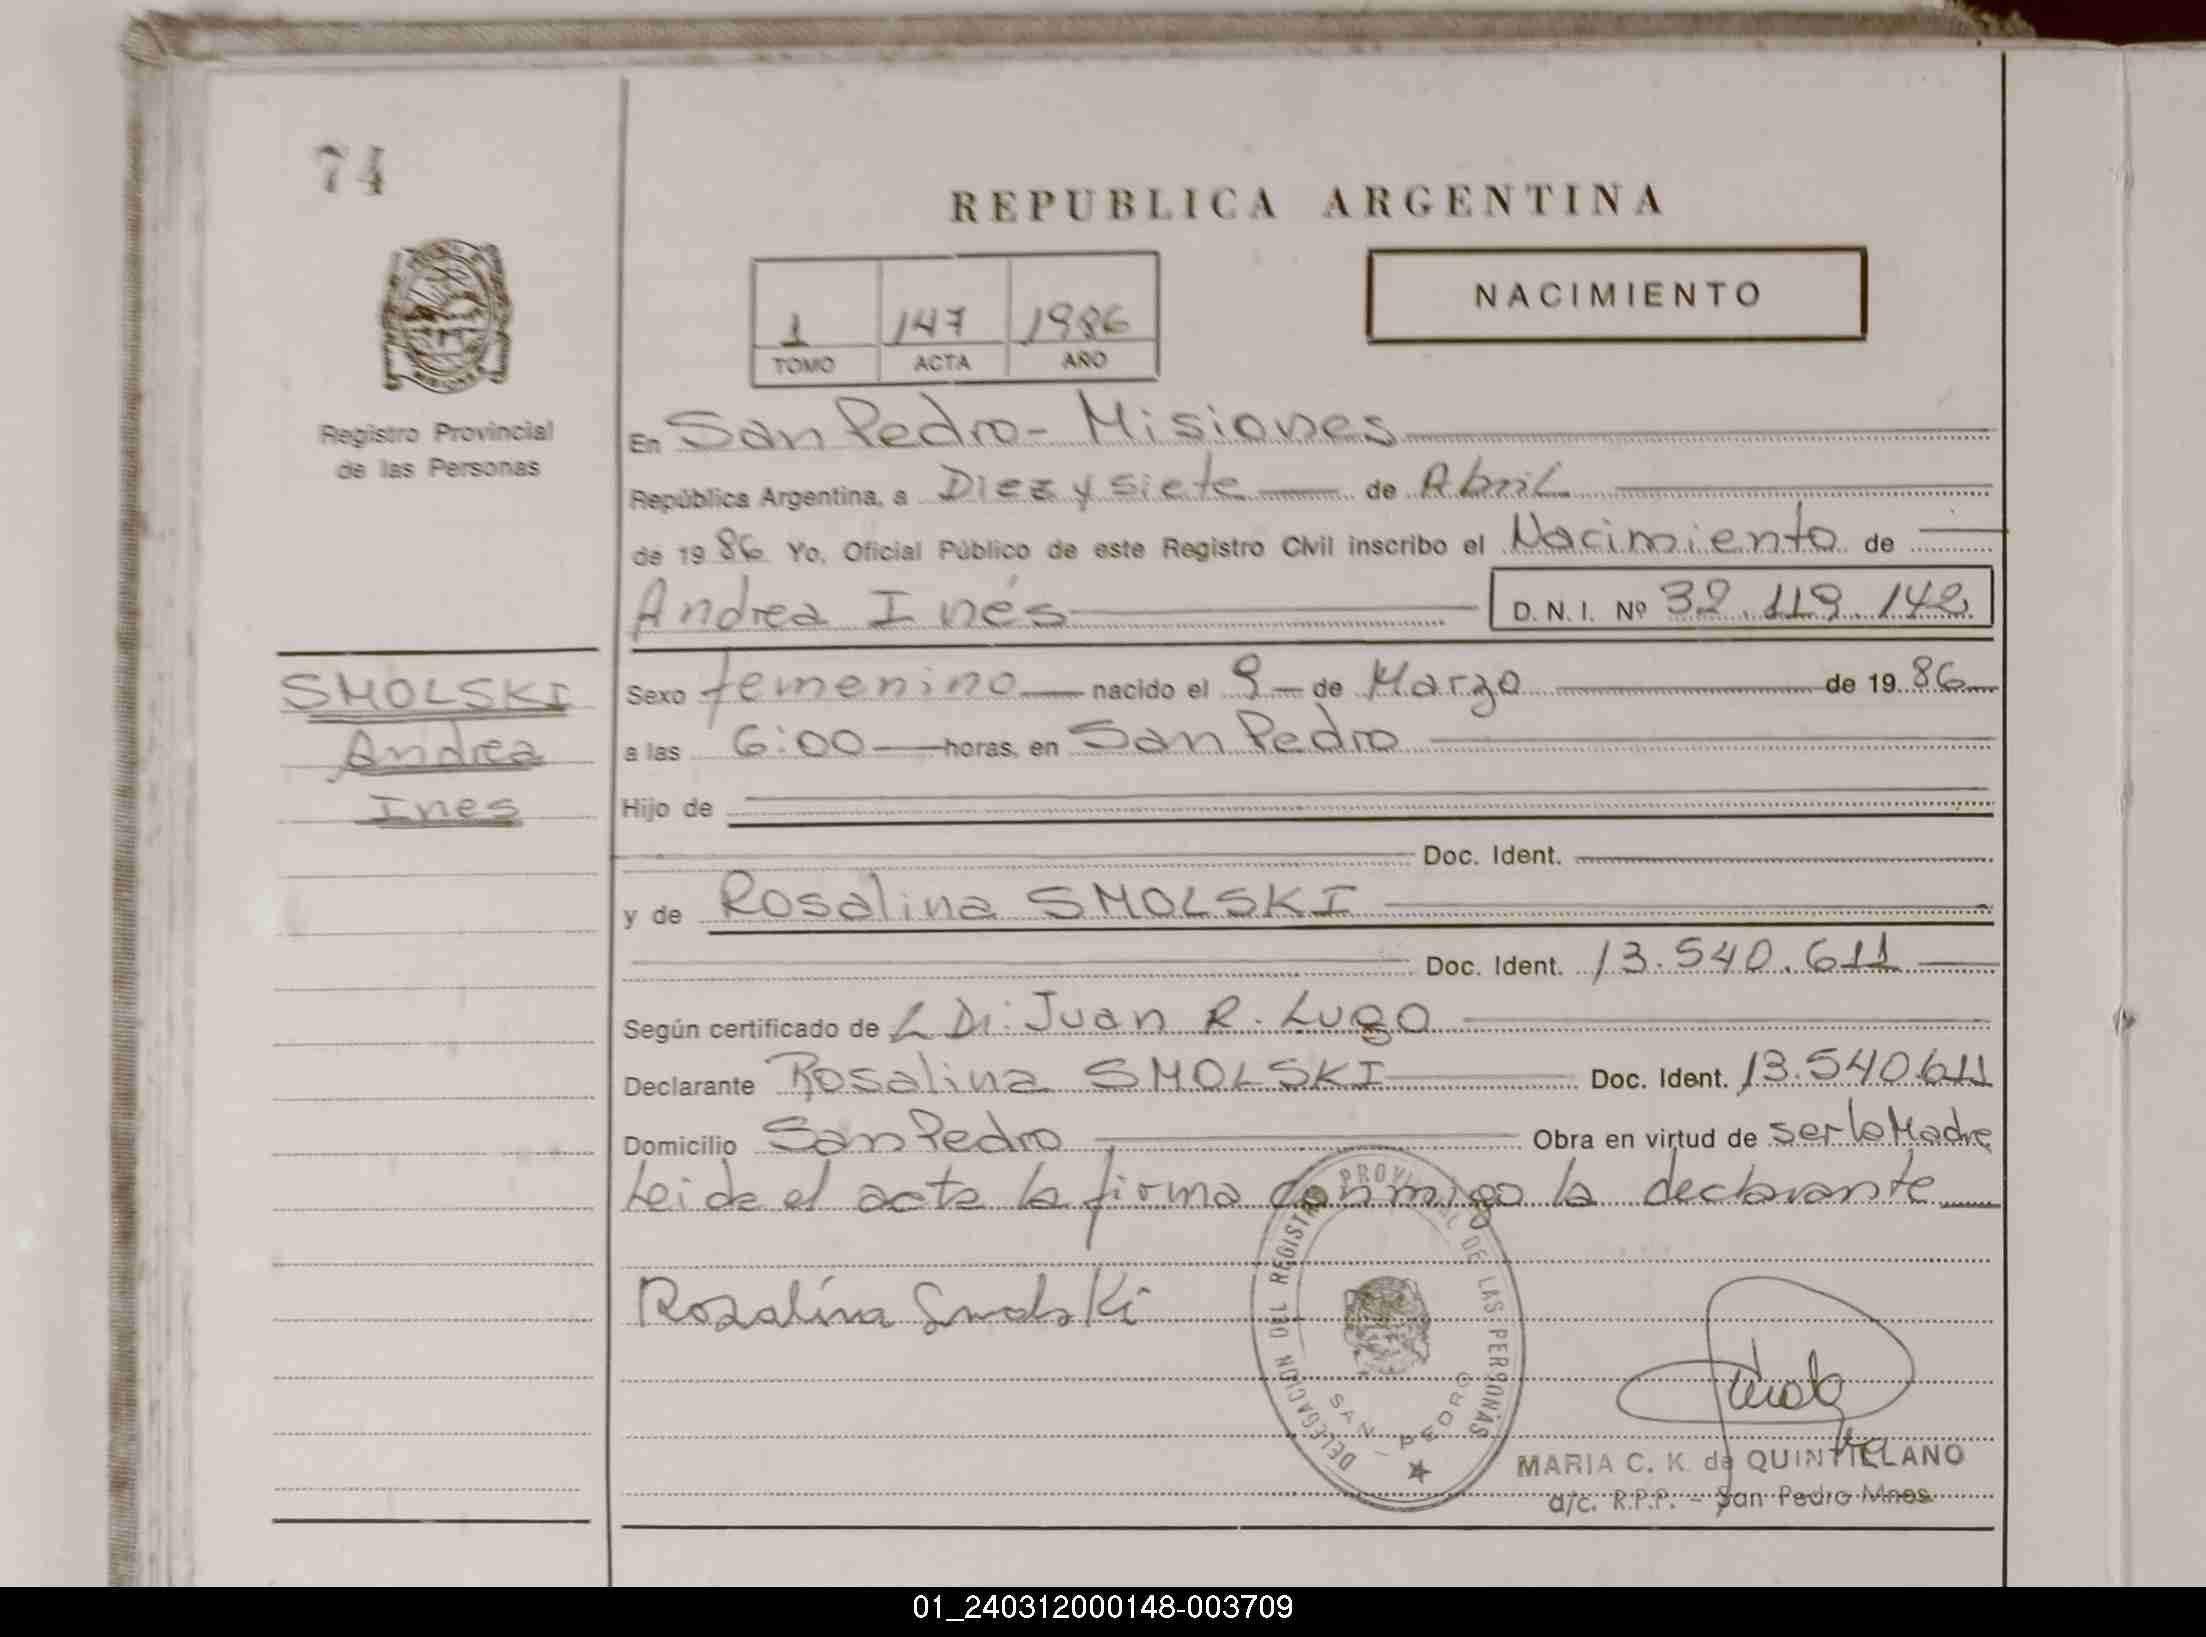 74
REPUBLICA ARGENTINA
NACIMIENTO
1 147 1986
TOMO ACTA AÑO
Registro Provincial
de las Personas
En San Pedro - Misiones
República Argentina, a Diez y siete de Abril
de 19 86 Yo, Oficial Público de este Registro Civil inscribo el Nacimiento de
Andrea Inés D.N.I. Nº 32.119.142
SMOLSKI
Andrea
Ines
Sexo femenino nacido el 9 de Marzo de 19 86
a las 6:00 horas, en San Pedro
Hijo de
Doc. Ident.
y de Rosalina SMOLSKI
Doc. Ident. 13.540.611
Según certificado de Juan R. Lugo
Declarante Rosalina SMOLSKI Doc. Ident. 13.540.611
Domicilio San Pedro Obra en virtud de ser la Madre
Leida el acta la firma conmigo la declarante
Rosalina Smolski
DELEGACION DEL REGISTRO PROVINCIAL DE LAS PERSONAS
SAN - PEDRO
MARIA C. K. de QUINTILLANO
a/c. R.P.P. - San Pedro Mnes
01_240312000148-003709